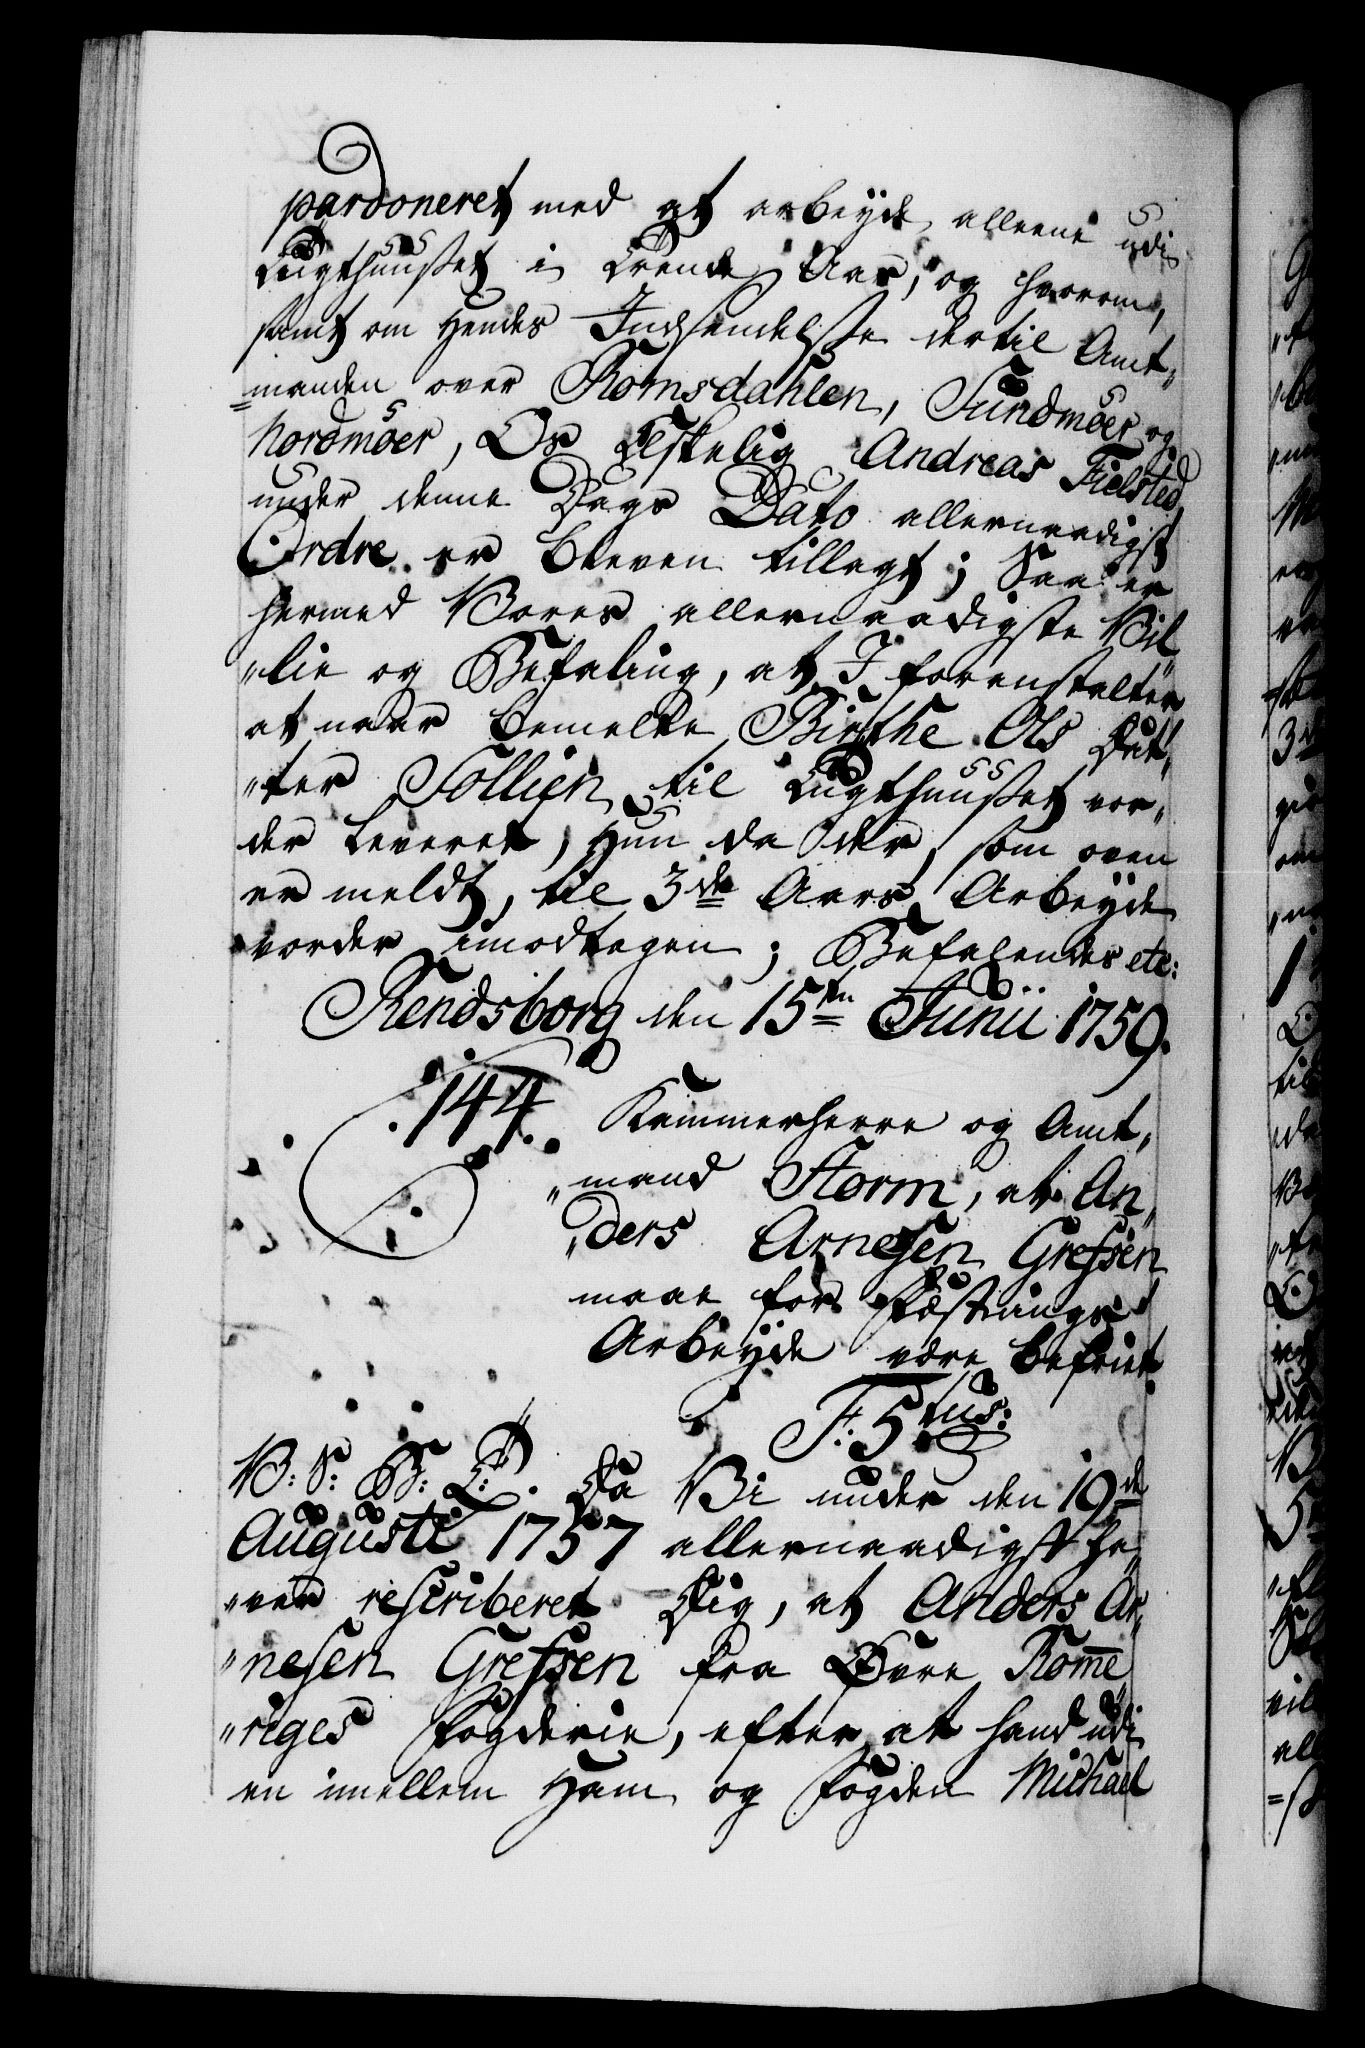 pardoneret med at arbeyde alleene udi
Tugthuuset i Trende Aar, og hvorom,
samt om hendes Indsendelse dertil Amt„
„manden over Romsdahlen, Sundmöer og
Nordmöer, Os Elskelig Andreas Fielsted
under denne Dags Dato allernaadigst
Ordre er bleven tillagt; Saa er
hermed Vores allernaadigste Vil„
„lie og Befaling, at I foranstalter
at naar bemelte Birthe Ols Dat„
„ter Sollien til Tugthuuset vor„
der leveret, Hun da der, som oven
er meldt, til 3de Aars Arbeyde
vorder imodtagen; Befalendes etc:
Rendsborg den 15ten Junii 1759.
144. Kammerherre og Amt„
„mand Storm, at An„
„ders Arnesen Grefsen
maae for Fæstnings
Arbeyde være befriet
F: 5tus:
V: S: G: T: Da Vi under den 19de
Augusti 1757 allernaadigst ha„
„ver rescriberet Dig, at Anders Ar„
„nesen Grefsen fra Øvre Rom̅e„
„riges Fogderie, efter at hand udi
en imellem Ham og Fogden Michael